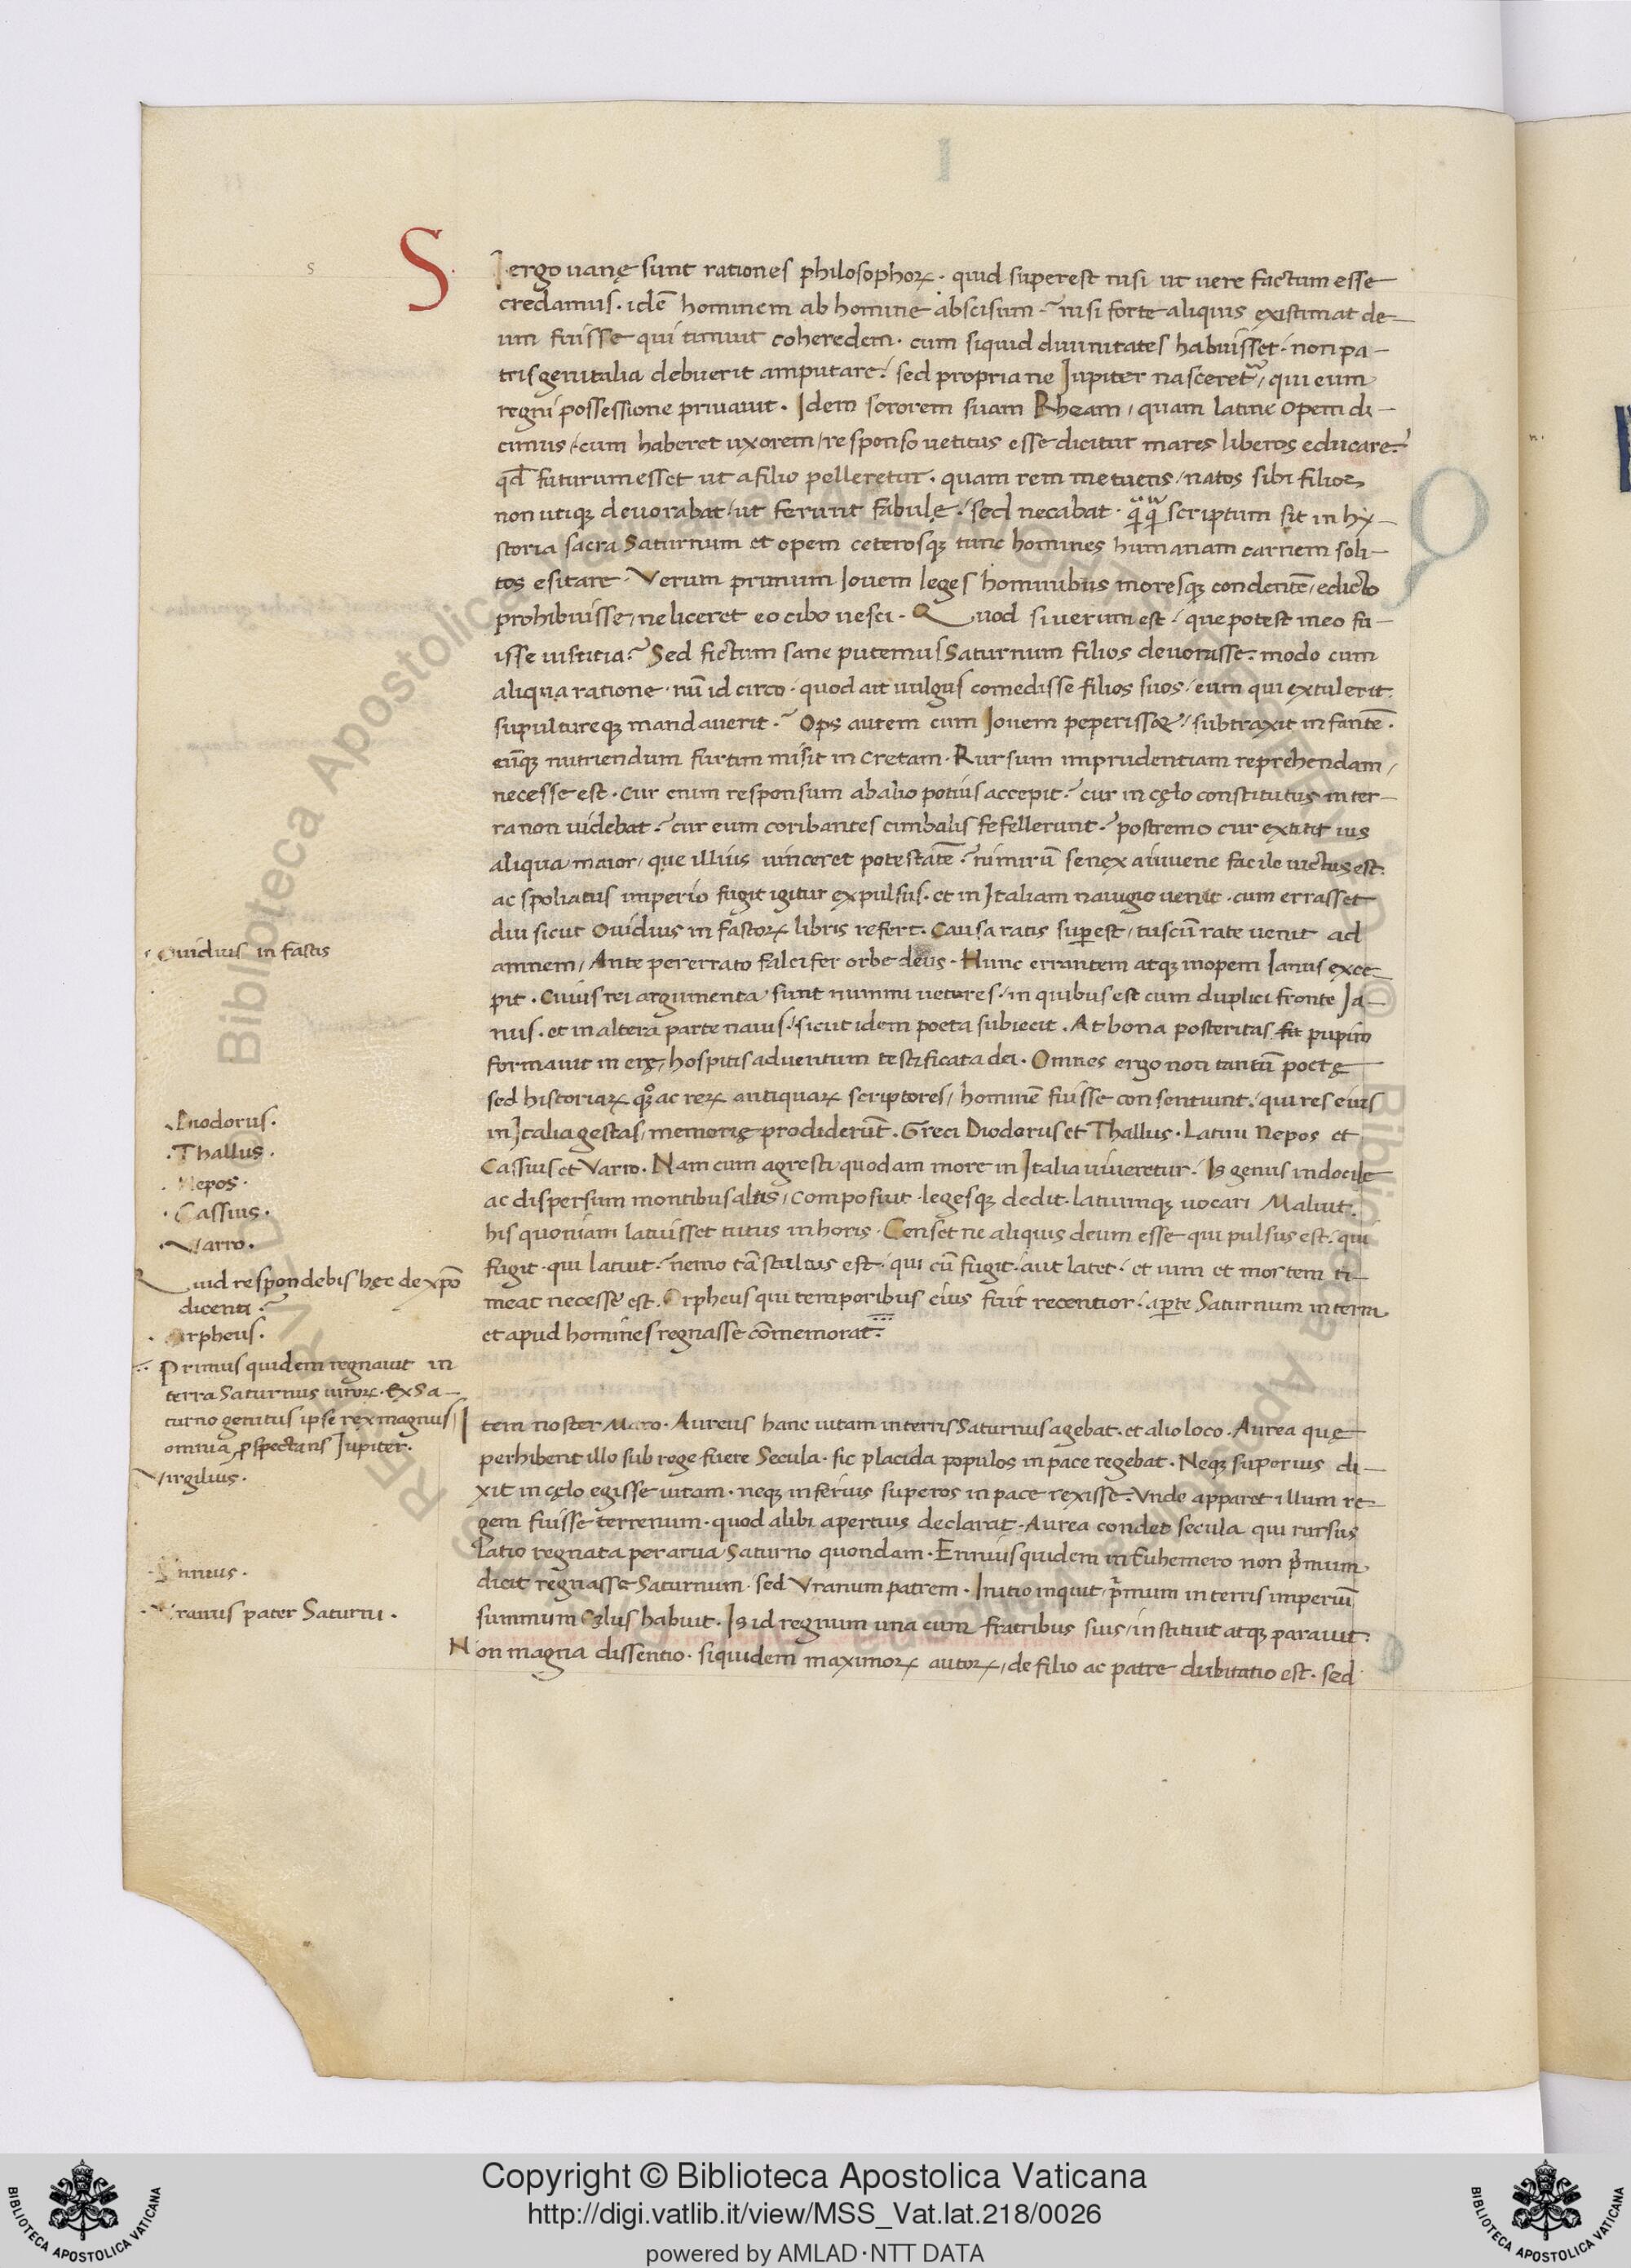 SI ergo uanę sunt rationes philosophoꝝ. quid superest nisi ut uere factum esse
credamus. idē hominem ab homine abscisum? nisi forte aliquis existimat de-
um fuisse qui timuit coheredem. cum siquid diuinitates habuisset. non pa-
tris genitalia debuerit amputare. sed propria ne Iupiter nasceretᷓ, qui eum
regni possessione priuauit. Idem sororem suam Rheam, quam latine Opem di-
cimus, cum haberet uxorem, responso uetitus esse dicitur mares liberos educare.
qđ futurum esset ut a filio pelleretur. quam rem metuens, natos sibi filios
non utiqꝫ deuorabat, ut ferunt fabulę. sed necabat. qᷓqᷓ scriptum sit in hy-
storia sacra Saturnum et opem ceterosqꝫ tunc homines humanam carnem soli-
tos esitare. Verum primum Iouem leges hominibus moresqꝫ condentē, edicto
prohibuisse, ne liceret eo cibo uesci. Quod si uerum est. que potest in eo fu-
isse iustitia? Sed fictum sane putemus Saturnum filios deuorasse. modo cum
aliqua ratione. nū id circo. quod ait uulgus comedisse filios suos. eum qui extulerit.
supultureqꝫ mandauerit.? Ops autem cum Iouem peperisset, subtraxit infantē.
eūqꝫ nutriendum furtim misit in Cretam. Rursum imprudentiam reprehendam,
necesse est. Cur enim responsum ab alio potius accepit? cur in cęlo constitutus in ter-
ra non uidebat? cur eum coribantes cimbalis fefellerunt? postremo cur extitit uis
aliqua maior, que illius uinceret potestatē? nimirū senex a iuuene facile uictus est.
ac spoliatus imperio fugit igitur expulsus. et in Italiam nauigio uenit. cum errasset
diu sicut Ouidius in fastoꝝ libris refert. Causa ratis suꝑest, tuscū rate uenit ad
amnem, Ante pererrato falcifer orbe deus. Hunc errantem atqꝫ inopem Ianus exce-
pit. Cuius rei argumenta sunt nummi ueteres. in quibus est cum duplici fronte Ia-
nus. et in altera parte nauis. sicut idem poeta subiecit. At bona posteritas pupim
formauit in erę, hospitis aduentum testificata dei. Omnes ergo non tantū poetę
sed historiaꝝ qꝫ ac reꝝ antiquaꝝ scriptores, hominē fuisse consentiunt. qui res eius
in Italia gestas, memorię prodiderūt. Greci Diodorus et Thallus. Latini Nepos et
Cassius et Varro. Nam cum agresti quodam more in Italia uiueretur. Is genus indocile
ac dispersum montibus altis, composuit. legesqꝫ dedit. latiumqꝫ uocari Maluit.
his quoniam latuisset tutus in horis. Censet ne aliquis deum esse qui pulsus est. qui
fugit. qui latuit? nemo tā stultus est. qui cū fugit. aut latet. et uim et mortem ti-
meat necesse est. Orpheus qui temporibus eius fuit recentior. aꝑte Saturnum in terra
et apud homines regnasse cōmemorat.
Item noster Maro. Aureus hanc uitam in terris Saturnus agebat. et alio loco. Aurea quę
perhibent illo sub rege fuere Secula. sic placida populos in pace regebat. Neqꝫ superius di-
xit in cęlo egisse uitam. neqꝫ inferius superos in pace rexisse. Vnde apparet illum re-
gem fuisse terrenum. quod alibi apertius declarat. Aurea condet secula qui rursus
Latio regnata per arua Saturno quondam. Ennius quidem in Euhemero non p̾mum
dicit regnasse Saturnum. sed Vranum patrem. Initio inquit p̾mum in terris imperiū
summum Cęlus habuit. Is id regnum una cum fratribus suis, instituit atqꝫ parauit.
Non magna dissentio. siquidem maximoꝝ autoꝝ, de filio ac patre dubitatio est. sed
Ouidius in fastis
Diodorus.
Thallus.
Nepos.
Cassius.
Varro.
Quid respondebis hęc de xp̄o
dicenti?
Orpheus.
Primus quidem regnauit in
terra Saturnus uiroꝝ. Ex Sa-
turno genitus ipse rex magnus,
omnia ꝓspectans Iupiter.
Virgilius.
Ennius.
Vranus pater Saturni.
Copyright © Biblioteca Apostolica Vaticana
http://digi.vatlib.it/view/MSS_Vat.lat.218/0026
powered by AMLAD·NTT DATA
BIBLIOTECA APOSTOLICA VATICANA
BIBLIOTECA APOSTOLICA VATICANA